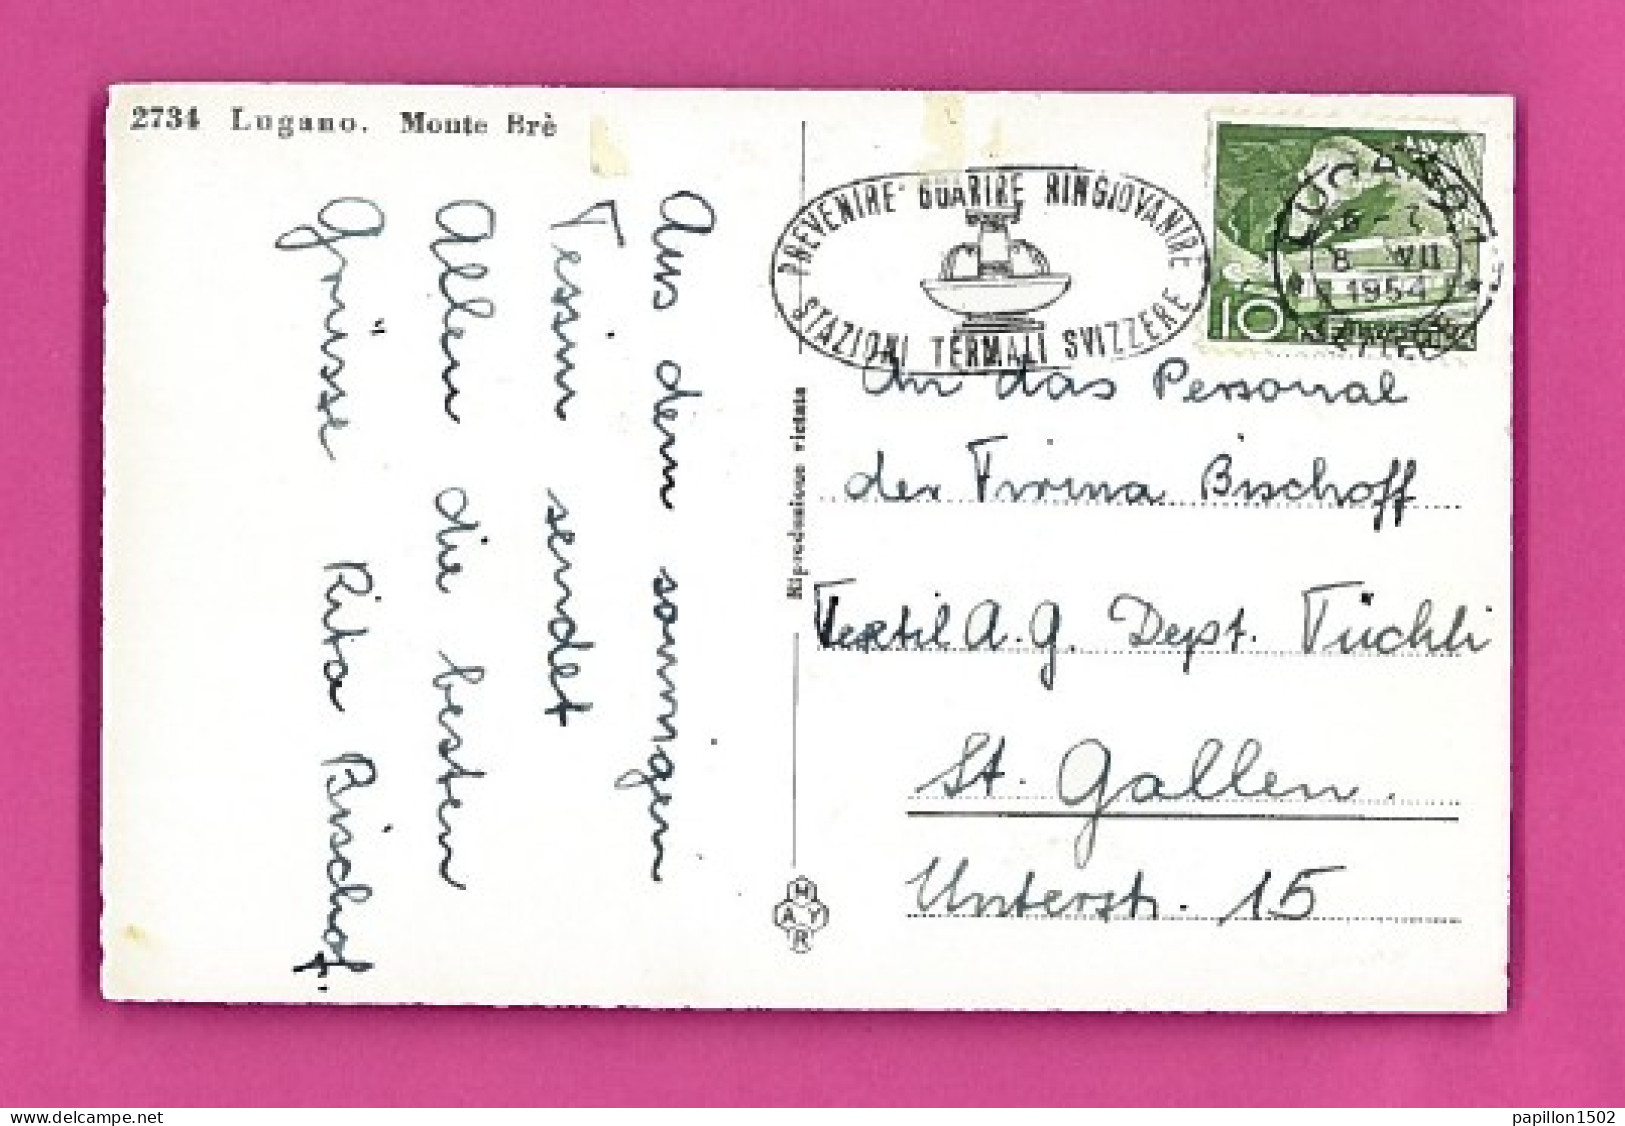 2734 Lugano. Monte Brè
Aus dem sonnigen
Tessin sendet
Allen die besten
Grüsse Rita Bischof.
Riproduzione vietata
HARY
PREVENIRE GUARIRE RINGIOVANIRE
STAZIONI TERMALI SVIZZERE
LUGANO 1
8 VII
1954
10
An das Personal
der Firma Bischoff
Textil A.G. Dept. Tüchli
St. Gallen.
Unterstr. 15
www.delcampe.net
papillon1502